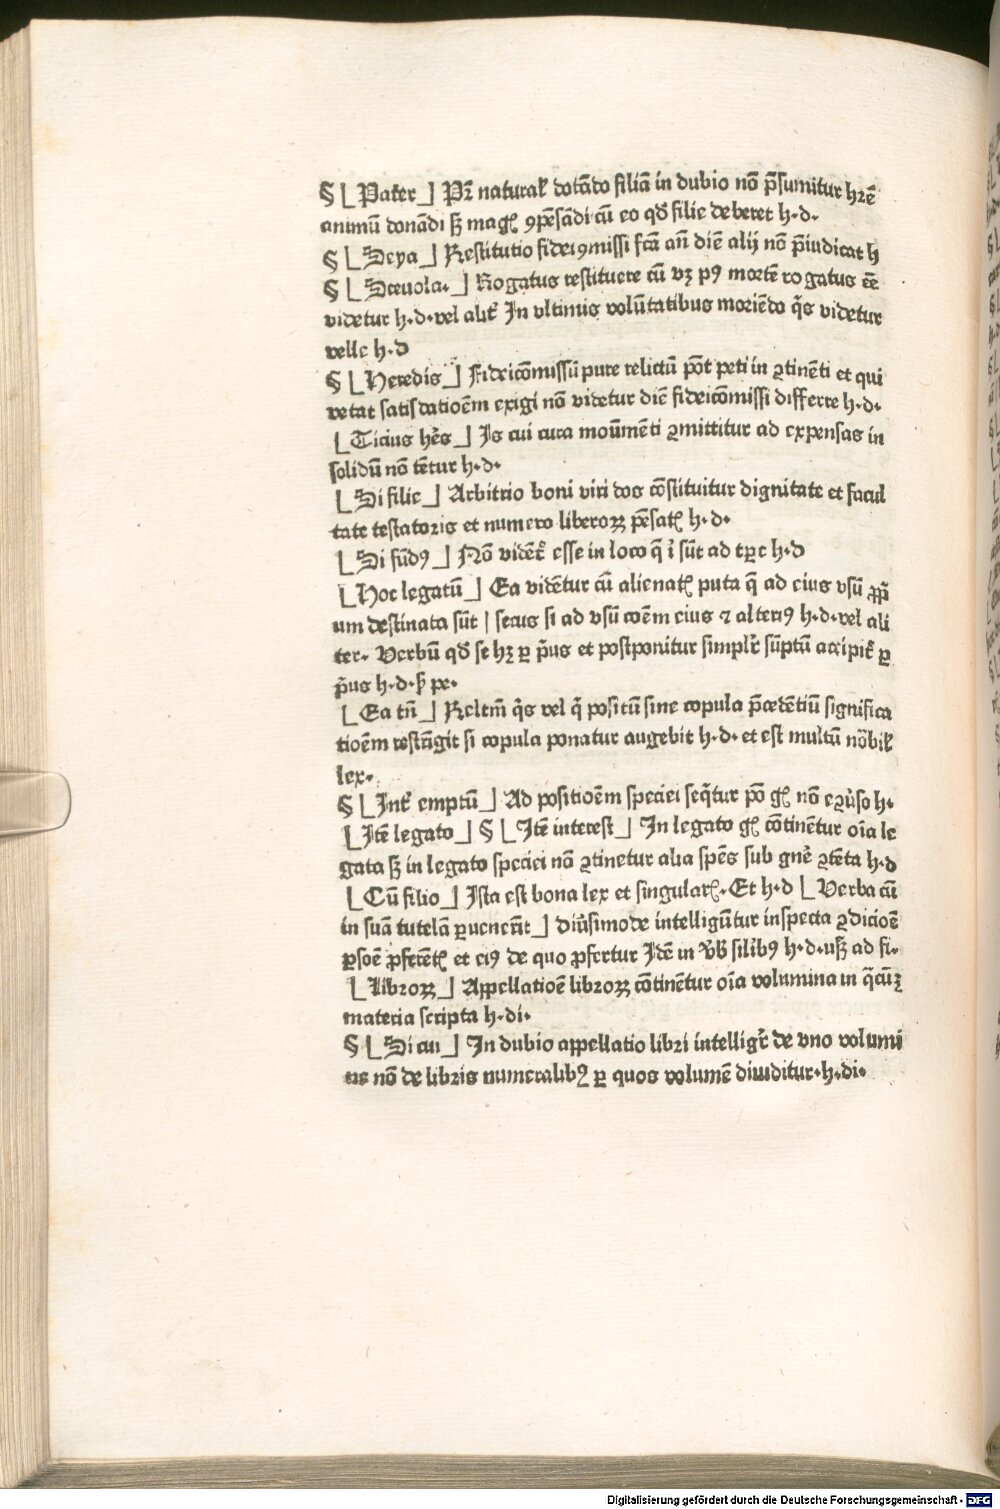 § ⌊Pater⌋ Pr̃ natural̃ dotãdo filiã in dubio nõ p̃sumitur hr̃e
animũ donãdi sꝫ magꝭ ꝯpẽsãdi cũ eo qđ filie deberet h·d·
§ ⌊Seya⌋ Restitutio fideiꝯmissi fc̃a añ diẽ alij nõ p̃iudicat h
§ ⌊Sceuola·⌋ Rogatus restituere cũ vꝫ pꝰ mortẽ rogatus eẽ
videtur h·d·vel alit̃ In vltimis volũtatibus moriẽdo q̃s videtur
velle h·d
§ ⌊Heredis⌋ Fideicõmissũ pure relictũ põt peti in ꝯtinẽti et qui
vetat satisdatioẽm exigi nõ videtur diẽ fideicõmissi differre h·d·
⌊Ticius hẽs⌋ Is cui cura moũmẽti ꝯmittitur ad expensas in
solidũ nõ tẽtur h·d·
⌊Si filie⌋ Arbitrio boni viri dos cõstituitur dignitate et facul
tate testatoris et numero liberoꝝ pẽsatꝭ h·d·
⌊Si fũdꝰ⌋ Nõ vidẽt̃ esse in loco q̃ ĩ sũt ad tꝑe h·d
⌊Hoc legatũ⌋ Ea vidẽtur cũ alienatꝭ puta q̃ ad eius vsũ ꝓp̃
um destinata sũt | secus si ad vsũ coẽm eius ⁊ alteriꝰ h·d·vel ali
ter· Verbũ qđ se hꝫ ꝑ p̃us et postponitur simplr̃ sũptũ accipit̃ ꝑ
p̃us h·d·ẜ pe·
⌊Ea tñ⌋ Reltm̃ q̃s vel q̃ positũ sine copula p̃cedẽtiũ significa
tioẽm restrĩgit si copula ponatur augebit h·d· et est multũ nõbil̃
lex·
§ ⌊Int̃ emptũ⌋ Ad positioẽm speciei seq̃tur põ gꝭ nõ eꝯũso h·
⌊Itẽ legato⌋ § ⌊Itẽ interest⌋ In legato gꝭ cõtinẽtur oĩa le
gata sꝫ in legato speciei nõ ꝯtinetur alia spẽs sub gnẽ ꝯtẽta h·d
⌊Cũ filio⌋ Ista est bona lex et singularꝭ· Et h·d ⌊Verba cũ
in suã tutelã ꝑuenerĩt⌋ diũsimode intelligũtur inspecta ꝯdicioẽ
ꝑsoẽ ꝓferẽtꝭ et eiꝰ de quo ꝓfertur Idẽ in ṽb̃ silibꝰ h·d·usqꝫ ad fi·
⌊Libroꝝ⌋ Appellatioẽ libroꝝ cõtinẽtur oĩa volumina in q̃cũqꝫ
materia scripta h·di·
§ ⌊Si cui⌋ In dubio appellatio libri intelligr̃ de vno volumi
ne nõ de libris numeralibꝰ ꝑ quos volumẽ diuiditur·h·di·
Digitalisierung gefördert durch die Deutsche Forschungsgemeinschaft - DFG